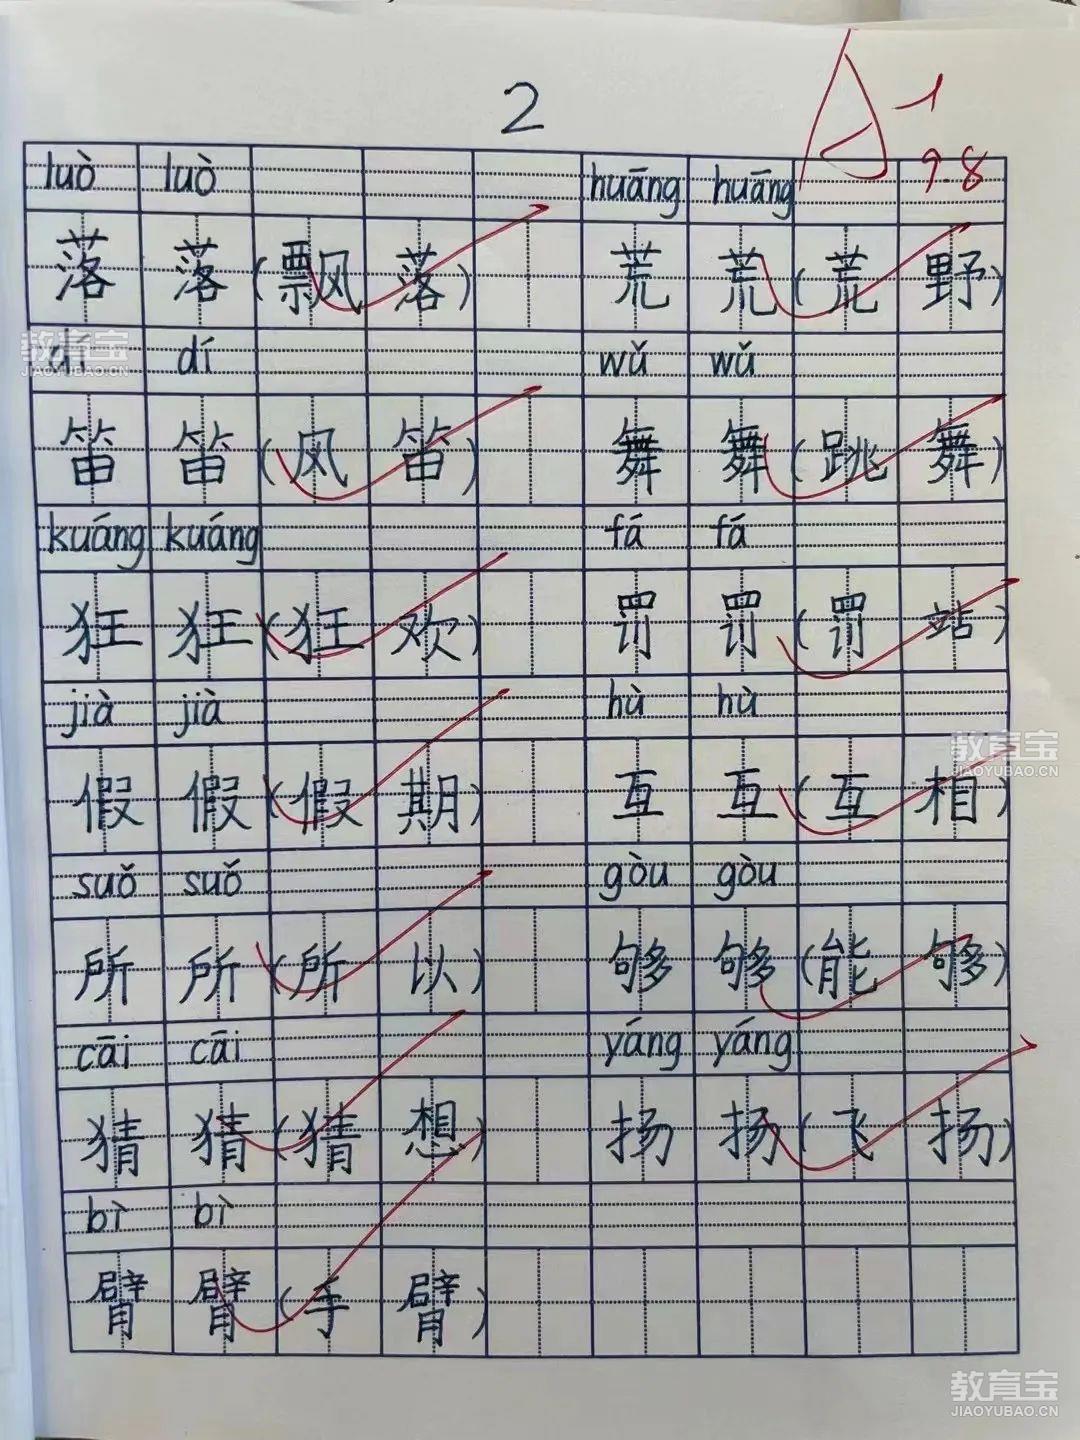 2
A-1
9.8
luò luò huāng huāng
落 落 (飘 落) 荒 荒 (荒 野)
dí dí wǔ wǔ
笛 笛 (风 笛) 舞 舞 (跳 舞)
kuáng kuáng fá fá
狂 狂 (狂 欢) 罚 罚 (罚 站)
jià jià hù hù
假 假 (假 期) 互 互 (互 相)
suǒ suǒ gòu gòu
所 所 (所 以) 够 够 (能 够)
cāi cāi yáng yáng
猜 猜 (猜 想) 扬 扬 (飞 扬)
bì bì
臂 臂 (手 臂)
教育宝
JIAOYUBAO.CN
教育宝
JIAOYUBAO.CN
教育宝
JIAOYUBAO.CN